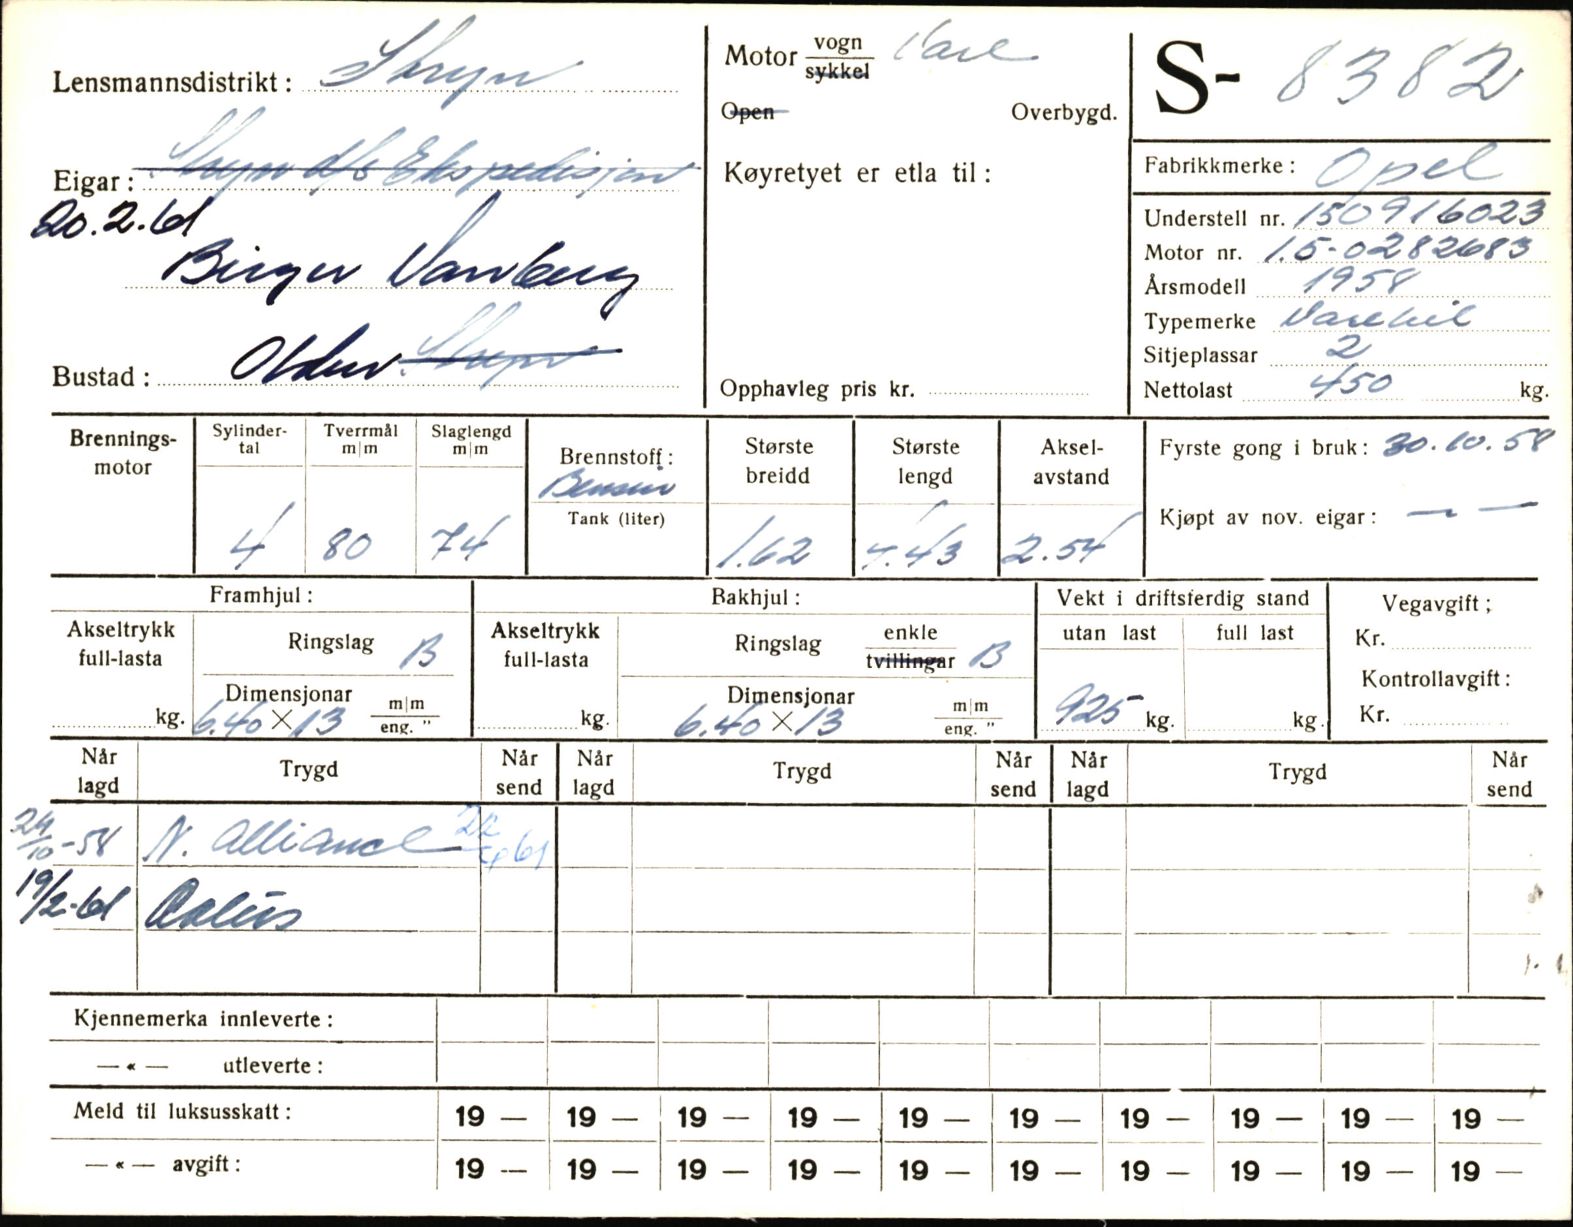 Lensmannsdistrikt: Stryn
Eigar: Stryn d/s Ekspedisjon
20.2.61
Birger Vanberg
Bustad: Olden Stryn
Motor vogn Vare
sykkel
Open Overbygd.
Køyretyet er etla til:
Opphavleg pris kr.
S- 8382
Fabrikkmerke: Opel
Understell nr. 150916023
Motor nr. 1.5-0282683
Årsmodell 1958
Typemerke Varebil
Sitjeplassar 2
Nettolast 450 kg.
Brennings-
motor
Sylinder-
tal
4
Tverrmål
m|m
80
Slaglengd
m|m
74
Brennstoff:
Bensin
Tank (liter)
Største
breidd
1.62
Største
lengd
4.43
Aksel-
avstand
2.54
Fyrste gong i bruk: 30.10.58
Kjøpt av nov. eigar: — —
Framhjul:
Akseltrykk
full-lasta
kg.
Ringslag B
Dimensjonar
6.40 × 13 m|m
eng. "
Bakhjul:
Akseltrykk
full-lasta
kg.
Ringslag enkle
tvillingar B
Dimensjonar
6.40 × 13 m|m
eng. "
Vekt i driftsferdig stand
utan last full last
925 kg. kg.
Vegavgift;
Kr.
Kontrollavgift:
Kr.
Når
lagd Trygd Når
send Når
lagd Trygd Når
send Når
lagd Trygd Når
send
24/10-58 N. Alliance 61
19/2-61
Kjennemerka innleverte:
— « — utleverte:
Meld til luksusskatt: 19 — 19 — 19 — 19 — 19 — 19 — 19 — 19 — 19 — 19 —
— « — avgift: 19 — 19 — 19 — 19 — 19 — 19 — 19 — 19 — 19 — 19 —